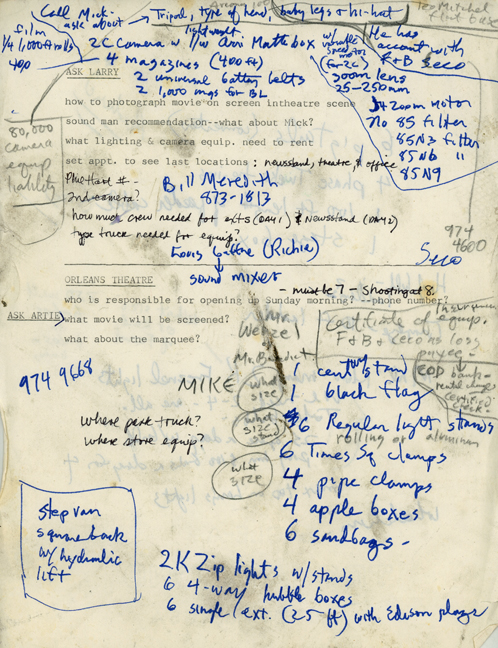 Call Mick-
ask about
Tripod, type of head, baby legs & hi-hat
lightweight
film
1/4 1,000 ft rolls
400
2C Camera w/ Arri Mattebox
4 magazines (400 ft)
2 universal battery belts
2 1,000 mags for BL
w/ variable speed motor
(for 2C)
He has
account with
F+B Ceco
zoom lens
25-250mm
zoom motor
No 85 filter
85N3 filter
85N6 "
85N9
ASK LARRY
how to photograph movie on screen intheatre scene
sound man recommendation--what about Mick?
what lighting & camera equip. need to rent
set appt. to see last locations : newsstand, theatre, & office
80,000
camera
equip
liability
Bill Meredith
873-1813
2nd camera?
how much crew needed for exts (DAY 1) & Newsstand (DAY 2)
type truck needed for equip?
(Richie)
sound mixer
974
4600
ORLEANS THEATRE
- must be 7 - Shooting at 8.
who is responsible for opening up Sunday morning? --phone number?
ASK ARTIE
what movie will be screened?
what about the marquee?
Mr.
Certificate of equip.
F+B & Cecos loss
payee-
974 9668
MIKE
what
size
what
size
stand
what
size
where park truck?
where store equip?
1 century stand
1 black flag
6 Regular light stands
rolling or aluminum
6 Times Sq clamps
4 pipe clamps
4 apple boxes
6 sandbags -
step van
squareback
w/ hydraulic
lift
2K Zip lights w/stands
6 4-way hubble boxes
6 single ext. (25 ft) with Edison plugs